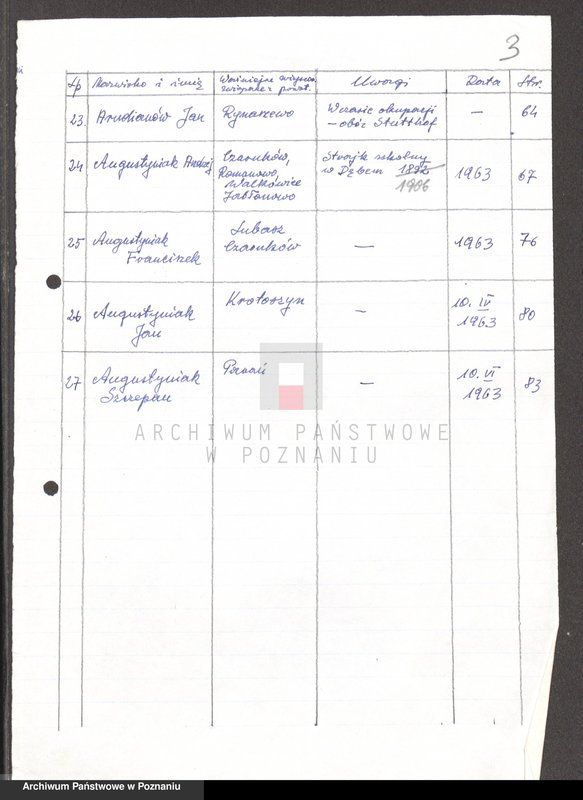 3
Lp Nazwisko i imię Ważniejsze Uwagi Data Str.
związane z pow.
23. Jan Rynarzewo W czasie okupacji — 64
– obóz Stutthof
24 Augustyniak Andrzej Czarnków, Strajk szkolny 1963 67
Romanowo, w Dębem 1892
Walkowice 1906
Jabłonowo
25 Augustyniak Lubasz — 1963 76
Franciszek Czarnków
26 Augustyniak Krotoszyn — 10. IV 80
Jan 1963
27 Augustyniak Poznań — 10. VI 83
Szczepan 1963
ARCHIWUM PAŃSTWOWE
W POZNANIU
Archiwum Państwowe w Poznaniu